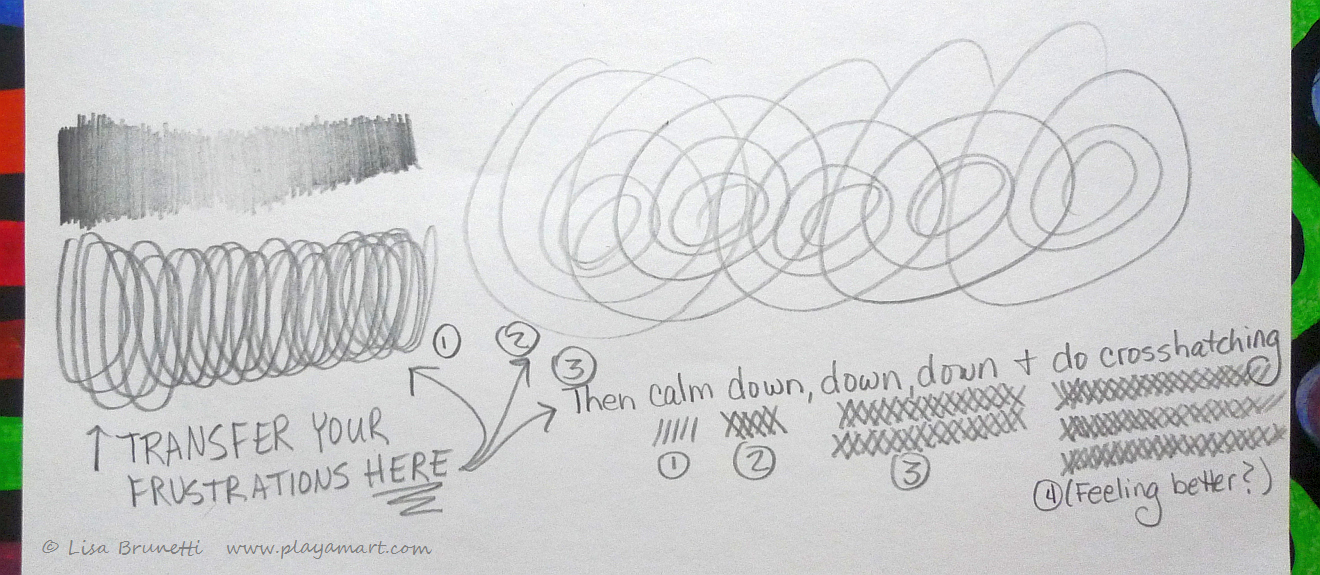 ① ② ③
Then calm down, down, down + do crosshatching
① ② ③
④ (Feeling better?)
↑ TRANSFER YOUR
FRUSTRATIONS HERE
© Lisa Brunetti www.playamart.com